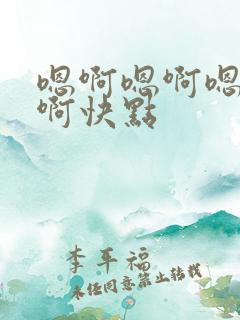 嗯啊嗯啊嗯
啊快點
李平福
未任同意禁止转载